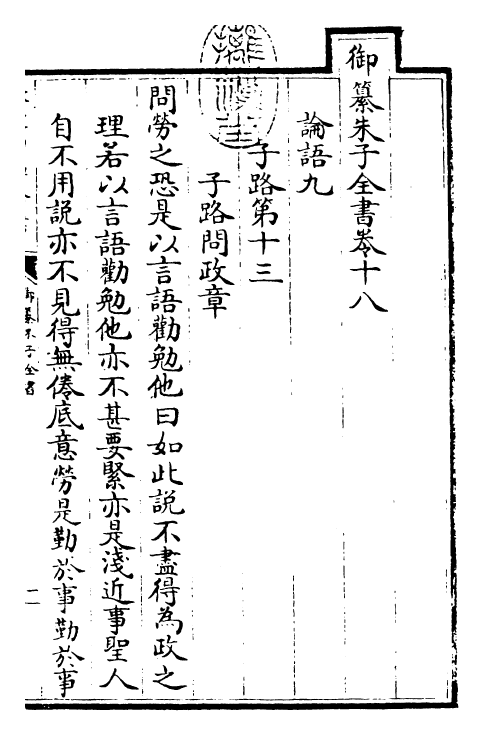 御纂朱子全書卷十八
論語九
子路第十三
子路問政章
問勞之恐是以言語勸勉他曰如此說不盡得為政之
理若以言語勸勉他亦不甚要緊亦是淺近事聖人
自不用說亦不見得無倦底意勞是勤於事勤於事
御纂朱子全書
二